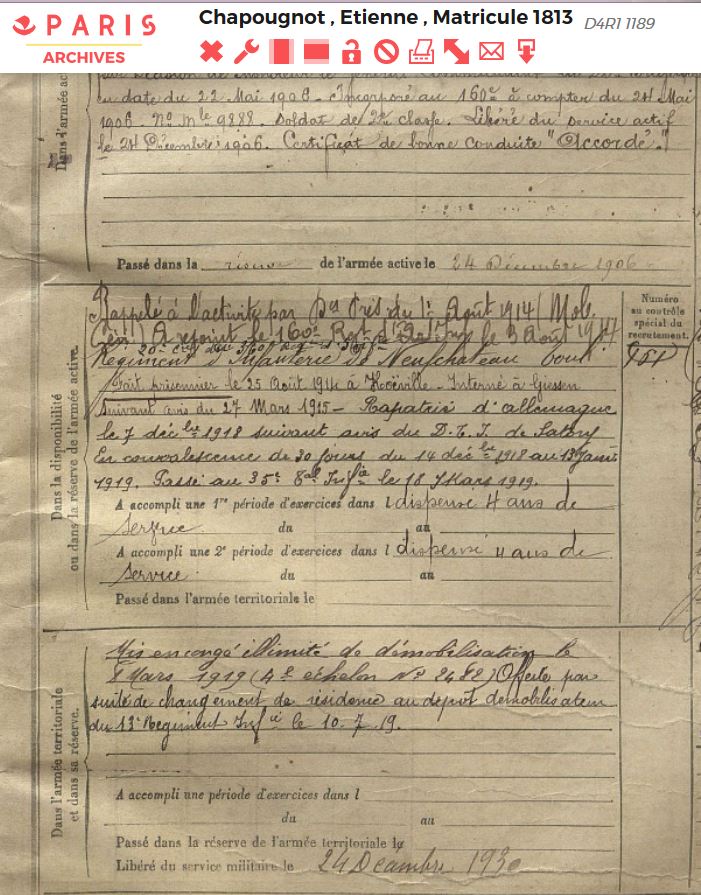 PARIS
ARCHIVES
Chapougnot , Etienne , Matricule 1813 D4R1 1189
en date du 22 Mai 1906 - Incorporé au 160e à compter du 24 Mai
1906. No Mle 9888. Soldat de 2e classe. Libéré du service actif
le 24 Décembre 1906. Certificat de bonne conduite "Accordé."
Dans l'armée ac
Passé dans la réserve de l'armée active le 24 Décembre 1906
Rappelé à l'activité par du 1er Août 1914 (Mob.
Gén) A rejoint le 160e Rgt d'Inf le 3 Août 1914
Régiment d'Infanterie de Neufchateau
Fait prisonnier le 25 Août 1914 à Hoëville - Interné à Giessen
Suivant avis du 27 Mars 1915 - Rapatrié d'allemagne
le 7 décbre 1918 suivant avis du D.T.I. de
En convalescence de 30 jours du 14 décbre 1918 au 13 Janv
1919. Passé au 35e Infie le 18 Mars 1919.
Numéro
au contrôle
spécial du
recrutement.
Dans la disponibilité
ou dans la réserve de l'armée active.
A accompli une 1re période d'exercices dans l dispensé 4 ans de
service du au
A accompli une 2e période d'exercices dans l dispensé 4 ans de
service du au
Passé dans l'armée territoriale le
Mis en congé illimité de démobilisation le
8 Mars 1919 (4e échelon No 2482) par
suite de changement de résidence au dépôt démobilisateur
du 13e Regiment Infie le 10-7-19.
Dans l'armée territoriale
et dans sa réserve.
A accompli une période d'exercices dans l
du au
Passé dans la réserve de l'armée territoriale le
Libéré du service militaire le 24 Dcambre 1930